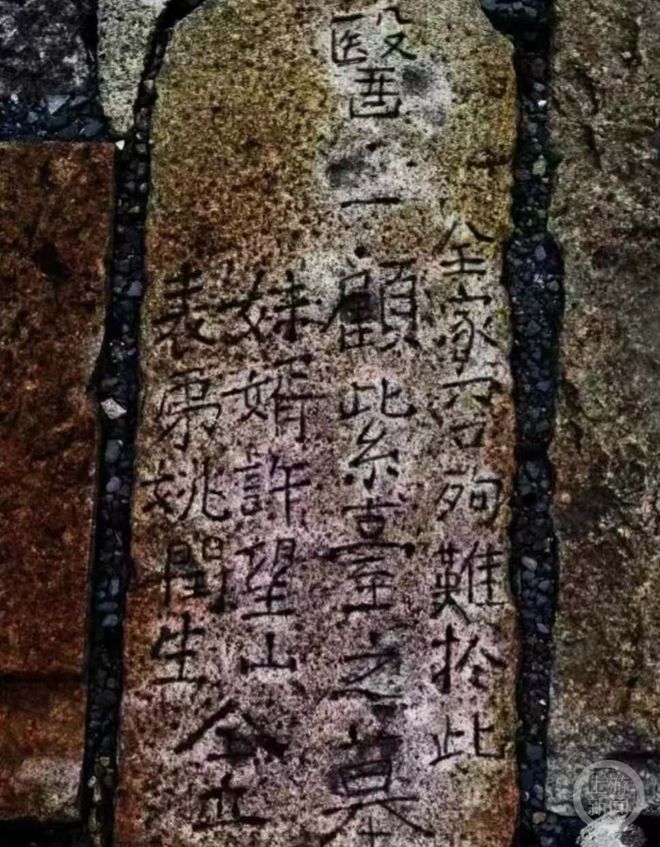 全家殉難於此
醫顧紫臺之墓
妹婿許望山
表弟姚閏生
仝立
上游新闻